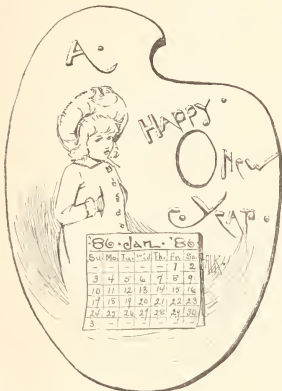 A.
HAPPY.
New
Year.
'86 · Jan. '86
Su. Mo. Tu. Wed. Th. Fri. Sa.
- - - - - 1 2
3 4 5 6 7 8 9
10 11 12 13 14 15 16
17 18 19 20 21 22 23
24 25 26 27 28 29 30
3 - - - - - -